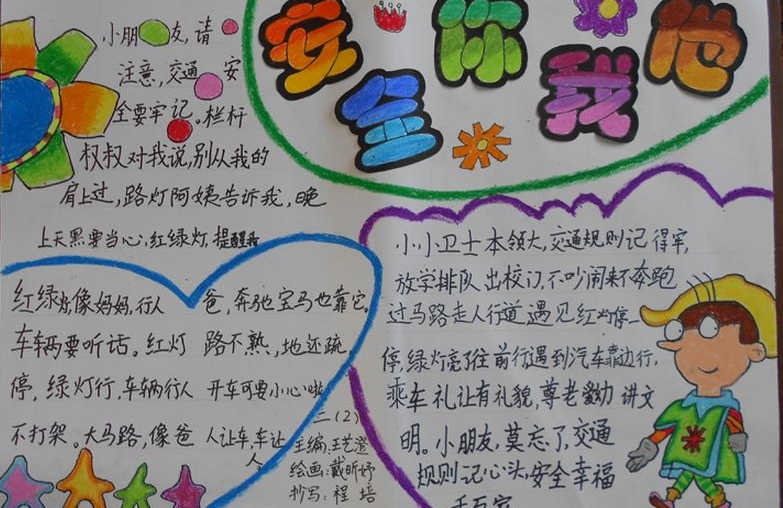 安全你我他
小朋友,请
注意,交通安
全要牢记。栏杆
叔叔对我说,别从我的
肩上过,路灯阿姨告诉我,晚
上天黑要当心,红绿灯,提醒我
红绿灯像妈妈,行人
车辆要听话。红灯
停,绿灯行,车辆行人
不打架。大马路,像爸
爸,奔驰宝马也靠它。
路不熟,地还疏,
开车可要小心啦
人让车,车让
人
三(2)
主编:王艺澄
绘画:戴昕妤
抄写:程培
小小卫士本领大,交通规则记得牢,
放学排队出校门,不吵闹来不奔跑
过马路走人行道遇见红灯停一
停,绿灯亮了往前行遇到汽车靠边行,
乘车礼让有礼貌,尊老爱幼讲文
明。小朋友,莫忘了,交通
规则记心头,安全幸福
千万家